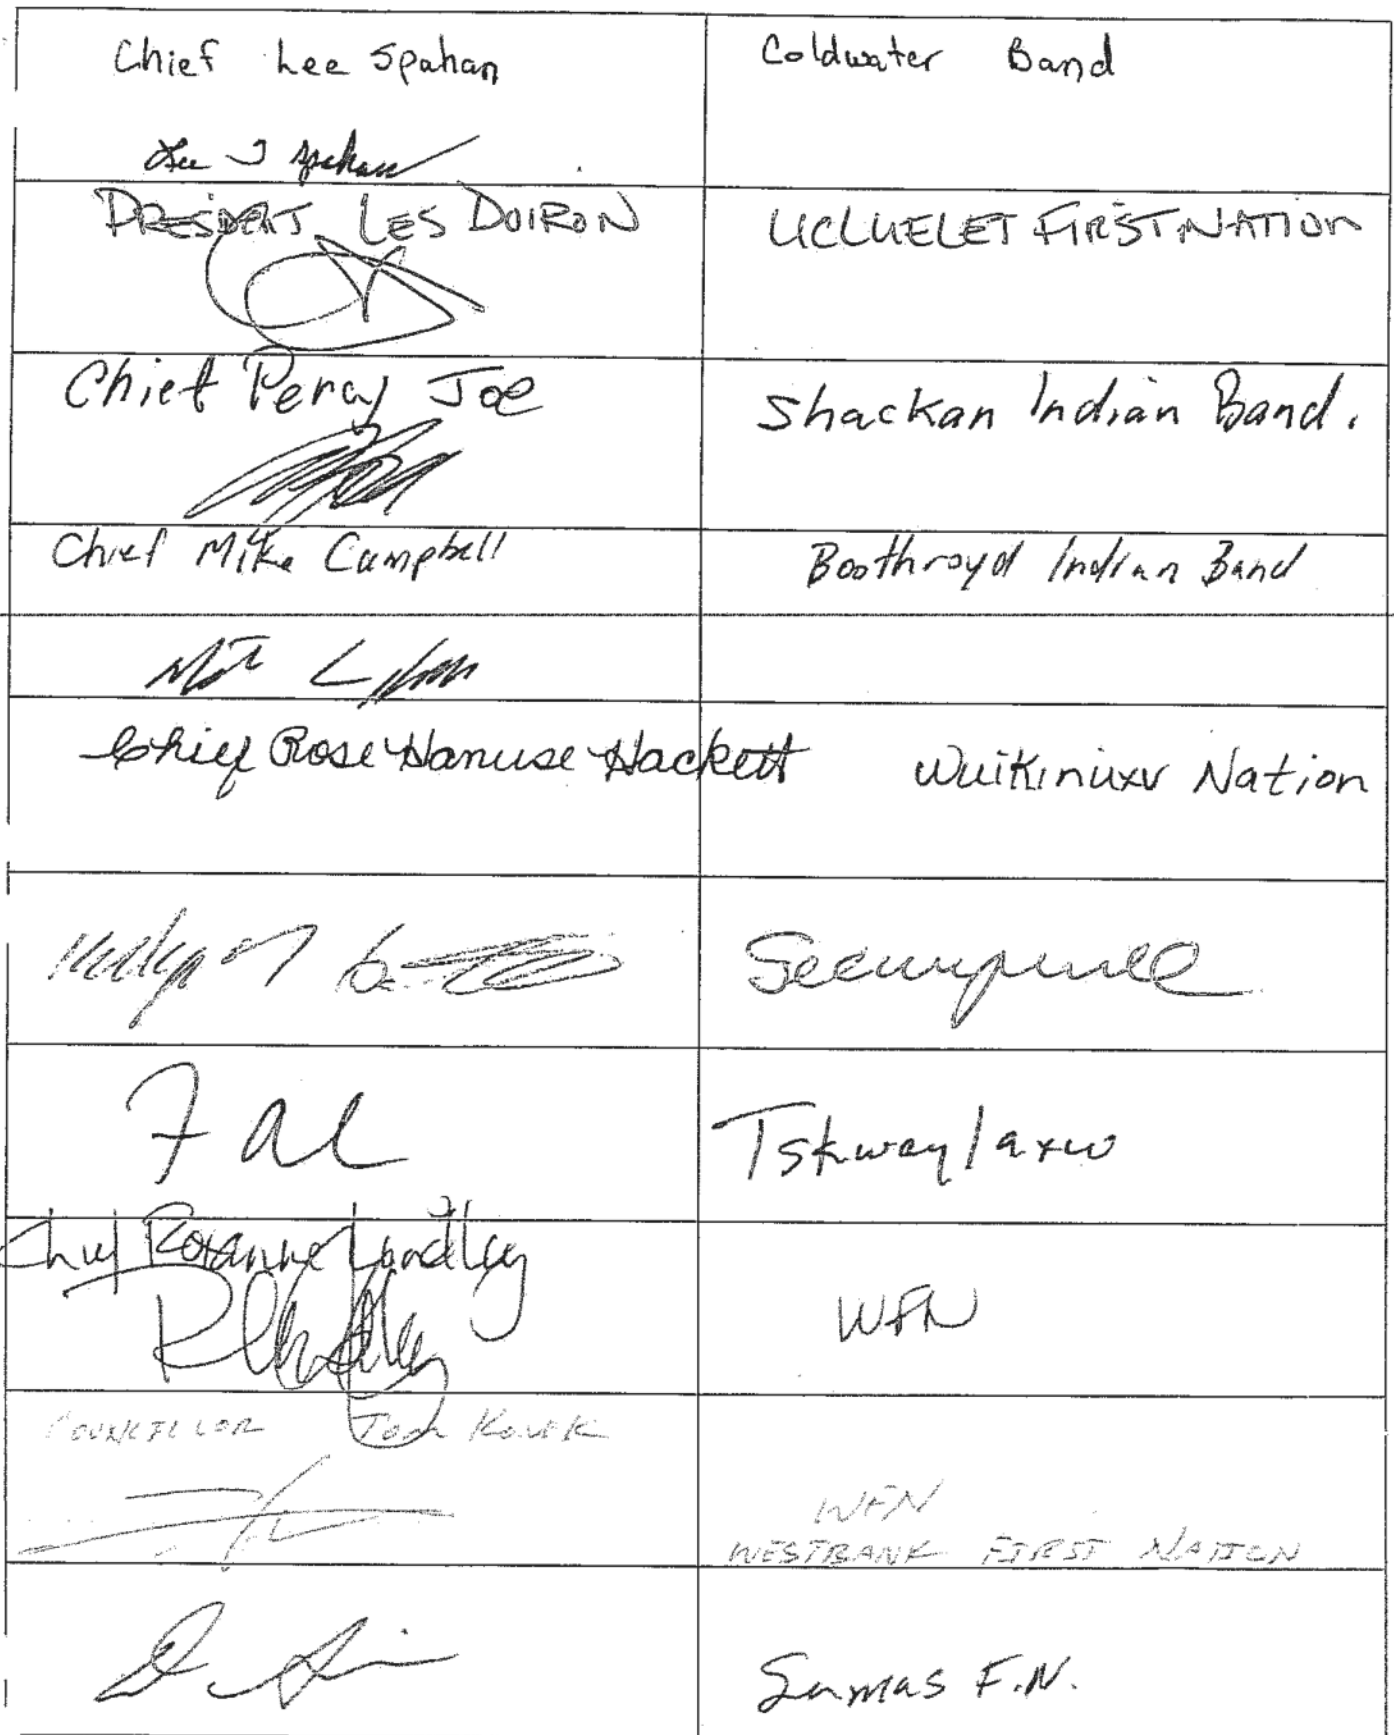 Chief Lee Spahan
Coldwater Band
Lee J Spahan
PRESIDENT LES DOIRON
UCLUELET FIRST NATION
Chief Percy Joe
Shackan Indian Band.
Chief Mike Campbell
Boothroyd Indian Band
Chief Rose Hanuse Hackett
Wuikinuxv Nation
Secwepemc
Tskwaylaxw
Chief Roxanne Lindley
WFN
COUNCILLOR Tom Konek
WFN
WESTBANK FIRST NATION
Sumas F.N.